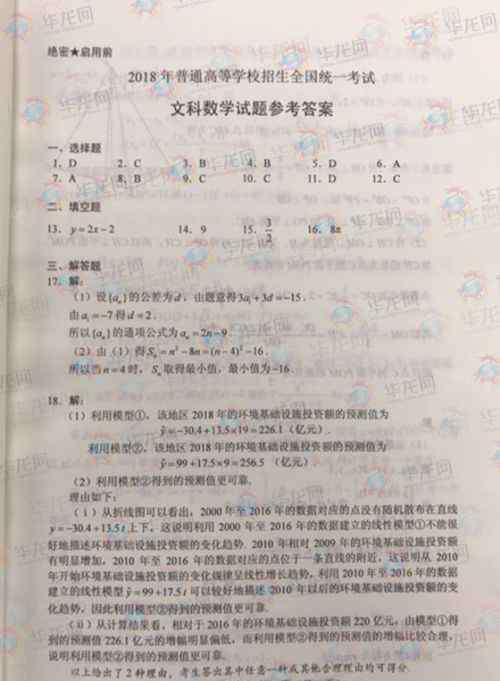 绝密★启用前
2018年普通高等学校招生全国统一考试
文科数学试题参考答案
一、选择题
1. D 2. C 3. B 4. B 5. D 6. A
7. A 8. B 9. C 10. C 11. D 12. C
二、填空题
13. y=2x-2 14. 9 15. 3/2 16. 8π
三、解答题
17. 解:
(1)设{aₙ}的公差为d,由题意得3a₁+3d=-15.
由a₁=-7得d=2.
所以{aₙ}的通项公式为aₙ=2n-9.
(2)由(1)得Sₙ=n²-8n=(n-4)²-16.
所以当n=4时,Sₙ取得最小值,最小值为-16.
18. 解:
(1)利用模型①,该地区2018年的环境基础设施投资额的预测值为
ŷ=-30.4+13.5×19=226.1(亿元).
利用模型②,该地区2018年的环境基础设施投资额的预测值为
ŷ=99+17.5×9=256.5(亿元)
(2)利用模型②得到的预测值更可靠.
理由如下:
(i)从折线图可以看出,2000年至2016年的数据对应的点没有随机散布在直线
y=-30.4+13.5t上下,这说明利用2000年至2016年的数据建立的线性模型①不能很
好地描述环境基础设施投资额的变化趋势.2010年相对2009年的环境基础设施投资额
有明显增加,2010年至2016年的数据对应的点位于一条直线的附近,这说明从2010
年开始环境基础设施投资额的变化规律呈线性增长趋势,利用2010年至2016年的数据
建立的线性模型ŷ=99+17.5t可以较好地描述2010年以后的环境基础设施投资额的变
化趋势,因此利用模型②得到的预测值更可靠.
(ii)从计算结果看,相对于2016年的环境基础设施投资额220亿元,由模型①得
到的预测值226.1亿元的增幅明显偏低,而利用模型②得到的预测值的增幅比较合理,
说明利用模型②得到的预测值更可靠.
以上给出了2种理由,考生答出其中任意一种或其他合理理由均可得分.
华龙网